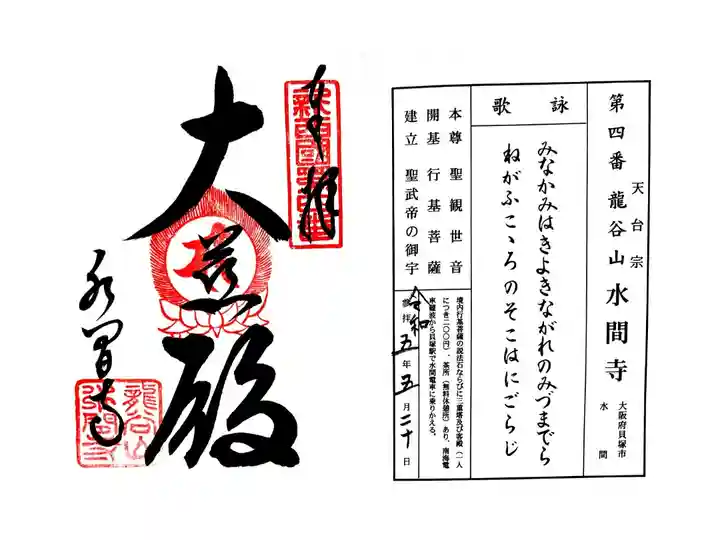 奉拝
大慈殿
水間寺
新西国第四番
龍谷山
水間寺
第四番 龍谷山 水間寺
天台宗
大阪府貝塚市
水間
詠歌
みなかみはきよきながれのみづまでら
ねがふこゝろのそこはにごらじ
本尊 聖観世音
開基 行基菩薩
建立 聖武帝の御宇
境内行基菩薩の説法石ならびに三重塔及び客殿(一人
につき二〇〇円)、茶所(無料休憩所)あり、南海電
車難波から貝塚駅で水間電車に乗りかえる。
令和
参拝 五年五月二十日